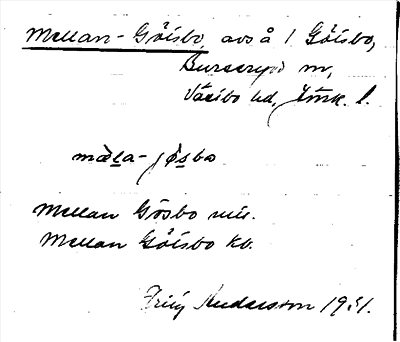 Mellan-Göisbo, avs å 1 Göisbo,
Burseryd sn,
Västbo hd, Jönk. l.
mæla- jøsbo
Mellan Gösbo
Mellan Göisbo kb.
Andersson 1931.